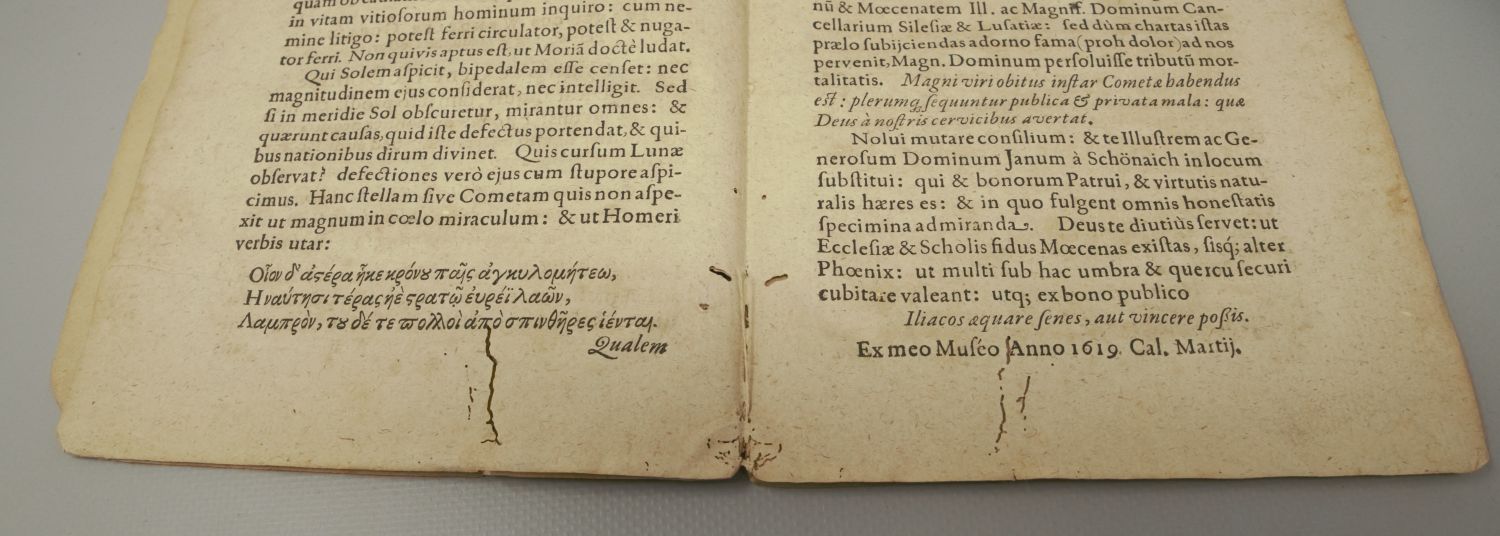 in vitam vitiosorum hominum inquiro: cum ne-
mine litigo: potest ferri circulator, potest & nuga-
tor ferri. Non quivis aptus est, ut Moriã doctè ludat.
Qui Solem aspicit, bipedalem esse censet: nec
magnitudinem ejus considerat, nec intelligit. Sed
si in meridie Sol obscuretur, mirantur omnes: &
quærunt causas, quid iste defectus portendat, & qui-
bus nationibus dirum divinet. Quis cursum Lunæ
observat? defectiones verò ejus cum stupore aspi-
cimus. Hanc stellam sive Cometam quis non aspe-
xit ut magnum in cœlo miraculum: & ut Homeri
verbis utar:
Οἷον δ' ἀϛέρα ἧκε κρόνȣ παῖς ἀγκυλομήτεω,
Η ναύτησι τέρας ἠὲ ϛρατῷ ἐυρέϊ λαῶν,
Λαμπρὸν, τȣ δέ τε πολλοὶ ἀπὸ σπινθῆρες ἱένται.
Qualem
nũ & Mœcenatem Ill. ac Magnif. Dominum Can-
cellarium Silesiæ & Lusatiæ: sed dùm chartas istas
prælo subijciendas adorno fama (proh dolor) ad nos
pervenit, Magn. Dominum persoluisse tributũ mor-
talitatis. Magni viri obitus instar Cometæ habendus
est: plerumq; sequuntur publica & privata mala: quæ
Deus à nostris cervicibus avertat.
Nolui mutare consilium: & te Illustrem ac Ge-
nerosum Dominum Janum à Schönaich in locum
substitui: qui & bonorum Patrui, & virtutis natu-
ralis hæres es: & in quo fulgent omnis honestatis
specimina admiranda. Deus te diutiùs servet: ut
Ecclesiæ & Scholis fidus Mœcenas existas, sisq; alter
Phœnix: ut multi sub hac umbra & quercu securi
cubitare valeant: utq; ex bono publico
Iliacos æquare senes, aut vincere poßis.
Ex meo Muséo Anno 1619. Cal. Martij.